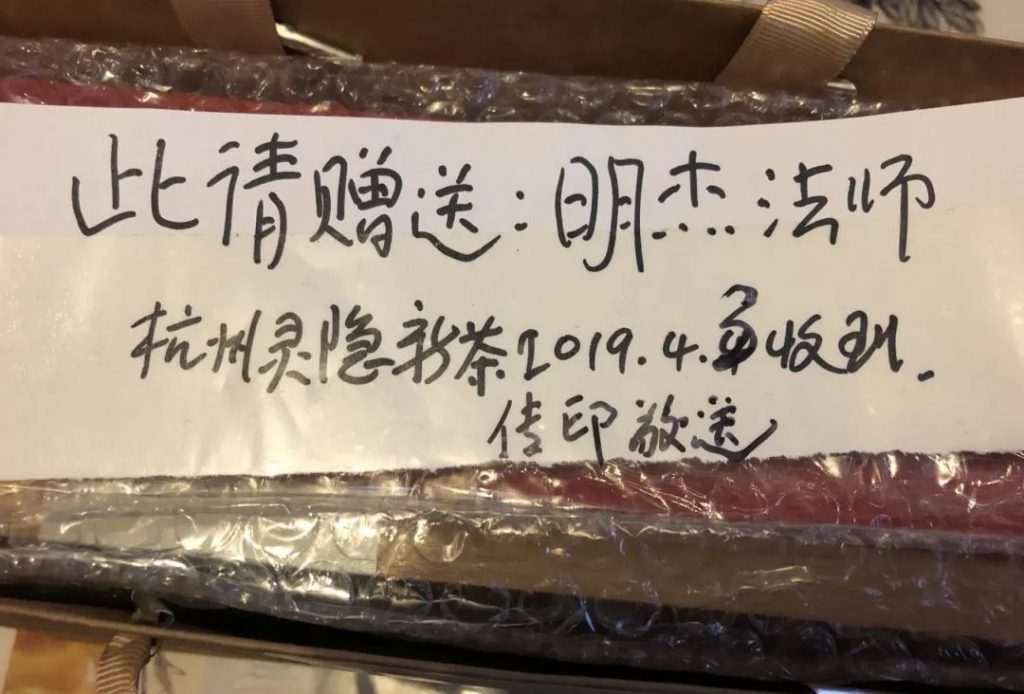 此请赠送:明杰法师
杭州灵隐新茶2019.4.收到.
传印敬送